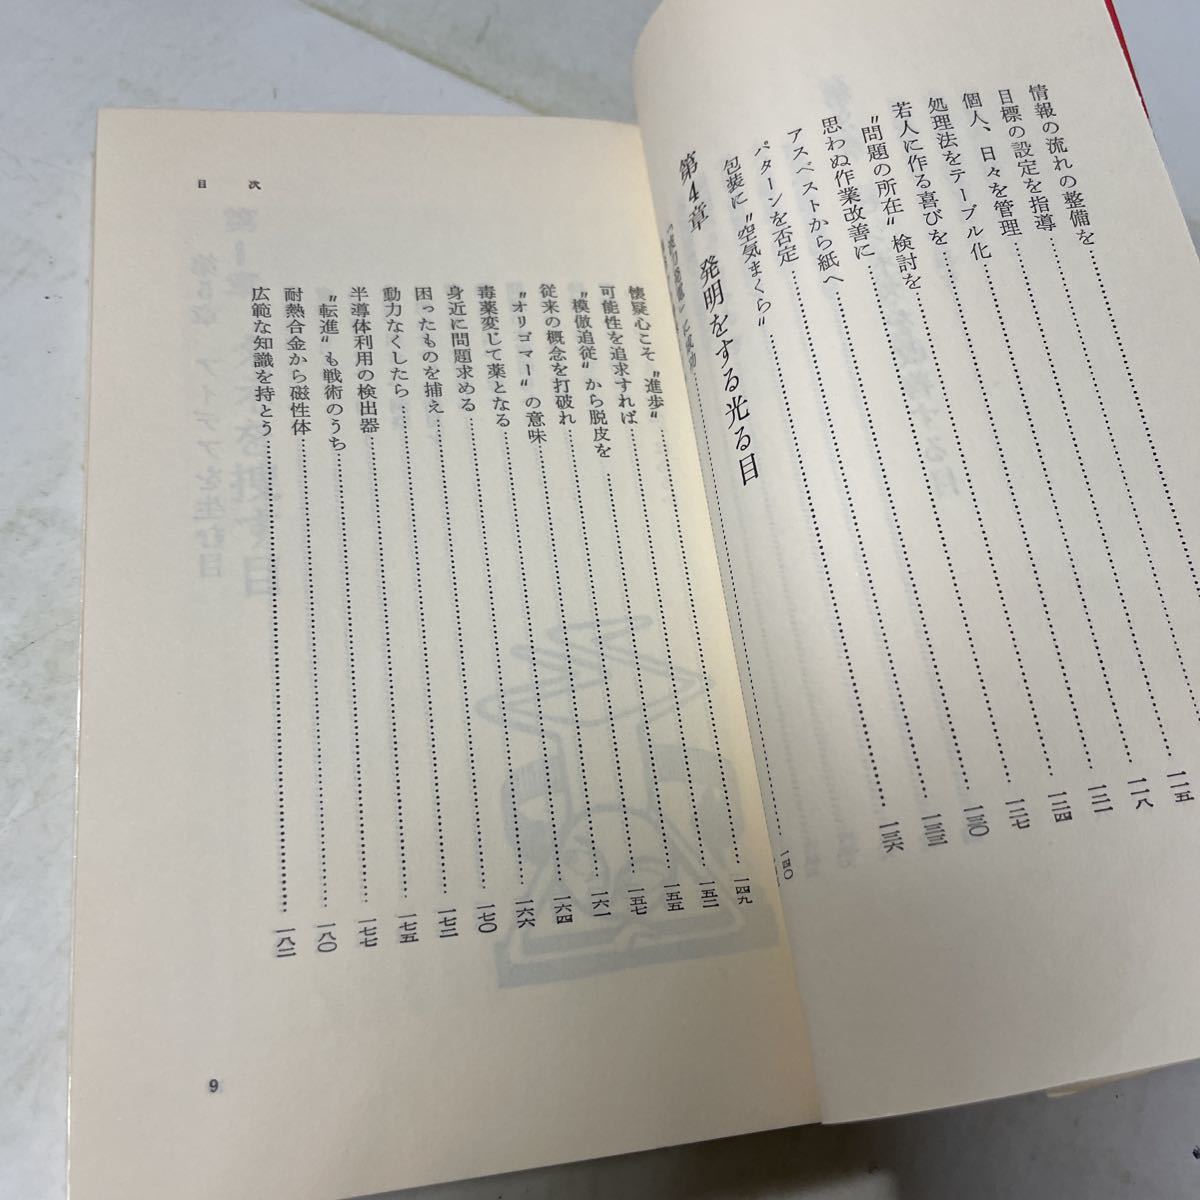 情報の流れの整備を……一一五
目標の設定を指導……一一八
個人、日々を管理……一二一
処理法をテーブル化……一二四
若人に作る喜びを……一二七
〝問題の所在〟検討を……一三〇
思わぬ作業改善に……一三三
アスベストから紙へ……一三六
パターンを否定……一四〇
包装に〝空気まくら〟……
第4章 発明をする光る目
に成功……
懐疑心こそ〝進歩〟……一四九
可能性を追求すれば……一五二
〝模倣追従〟から脱皮を……一五五
従来の概念を打破れ……一五七
〝オリゴマー〟の意味……一六一
毒薬変じて薬となる……一六四
身近に問題求める……一六六
困ったものを捕え……一七〇
動力なくしたら……一七二
半導体利用の検出器……一七五
〝転進〟も戦術のうち……一七七
耐熱合金から磁性体……一八〇
広範な知識を持とう……一八二
目次
9